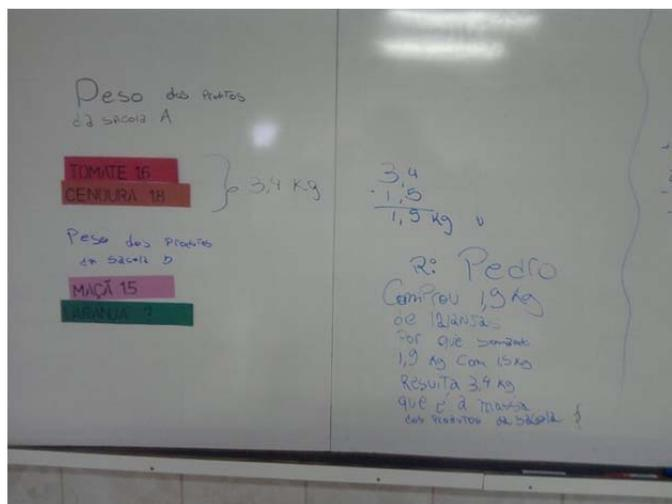 Peso dos Produtos
da sacola A
TOMATE 16
CENOURA 18
3,4 Kg
Peso dos Produtos
da sacola
MAÇÃ 15
LARANJA ?
3,4
- 1,5
1,9 Kg
R: Pedro
Comprou 1,9 Kg
de laranjas
Por que somando
1,9 Kg com 1,5 Kg
Resulta 3,4 Kg
que é a massa
dos Produtos da sacola